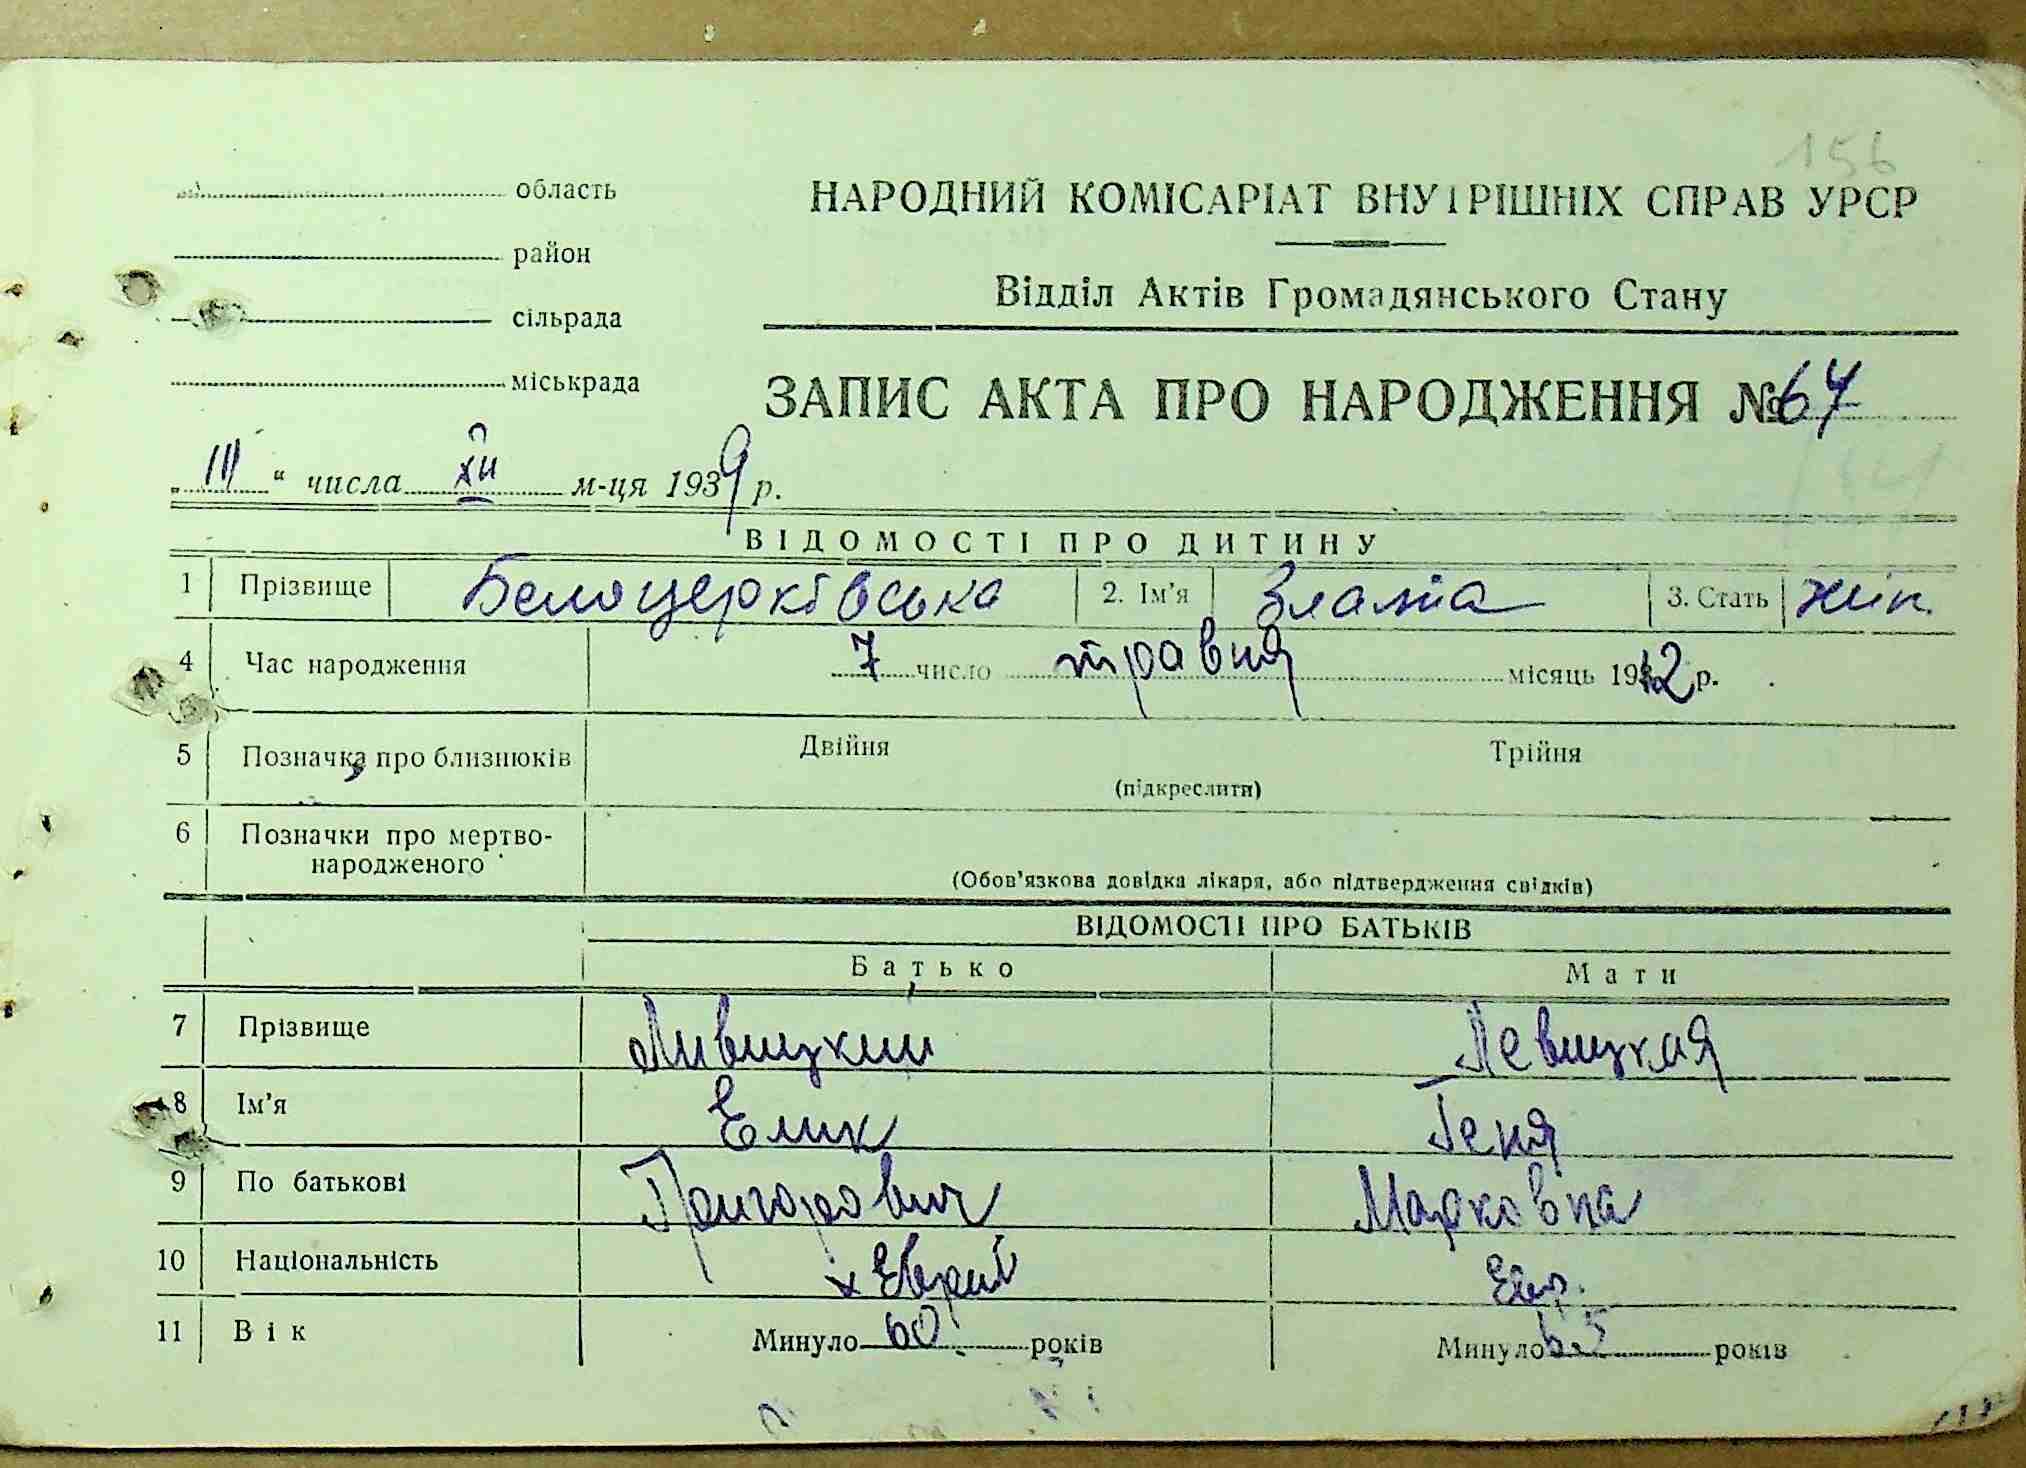 156
область
НАРОДНИЙ КОМІСАРІАТ ВНУТРІШНІХ СПРАВ УРСР
район
Відділ Актів Громадянського Стану
сільрада
міськрада
ЗАПИС АКТА ПРО НАРОДЖЕННЯ № 64
„ III “ числа XII м-ця 1939 р.
ВІДОМОСТІ ПРО ДИТИНУ
1 Прізвище Белоцерківська 2. Ім'я Злата 3. Стать жін.
4 Час народження 7 число травня місяць 1912 р.
5 Позначка про близнюків Двійня Трійня
(підкреслити)
6 Позначки про мертво-
народженого
(Обов'язкова довідка лікаря, або підтвердження свідків)
ВІДОМОСТІ ПРО БАТЬКІВ
Батько Мати
7 Прізвище Ливицкий Левицкая
8 Ім'я Елик Геня
9 По батькові Григорович Марковна
10 Національність Еврей Евр.
11 Вік Минуло 60 років Минуло 65 років